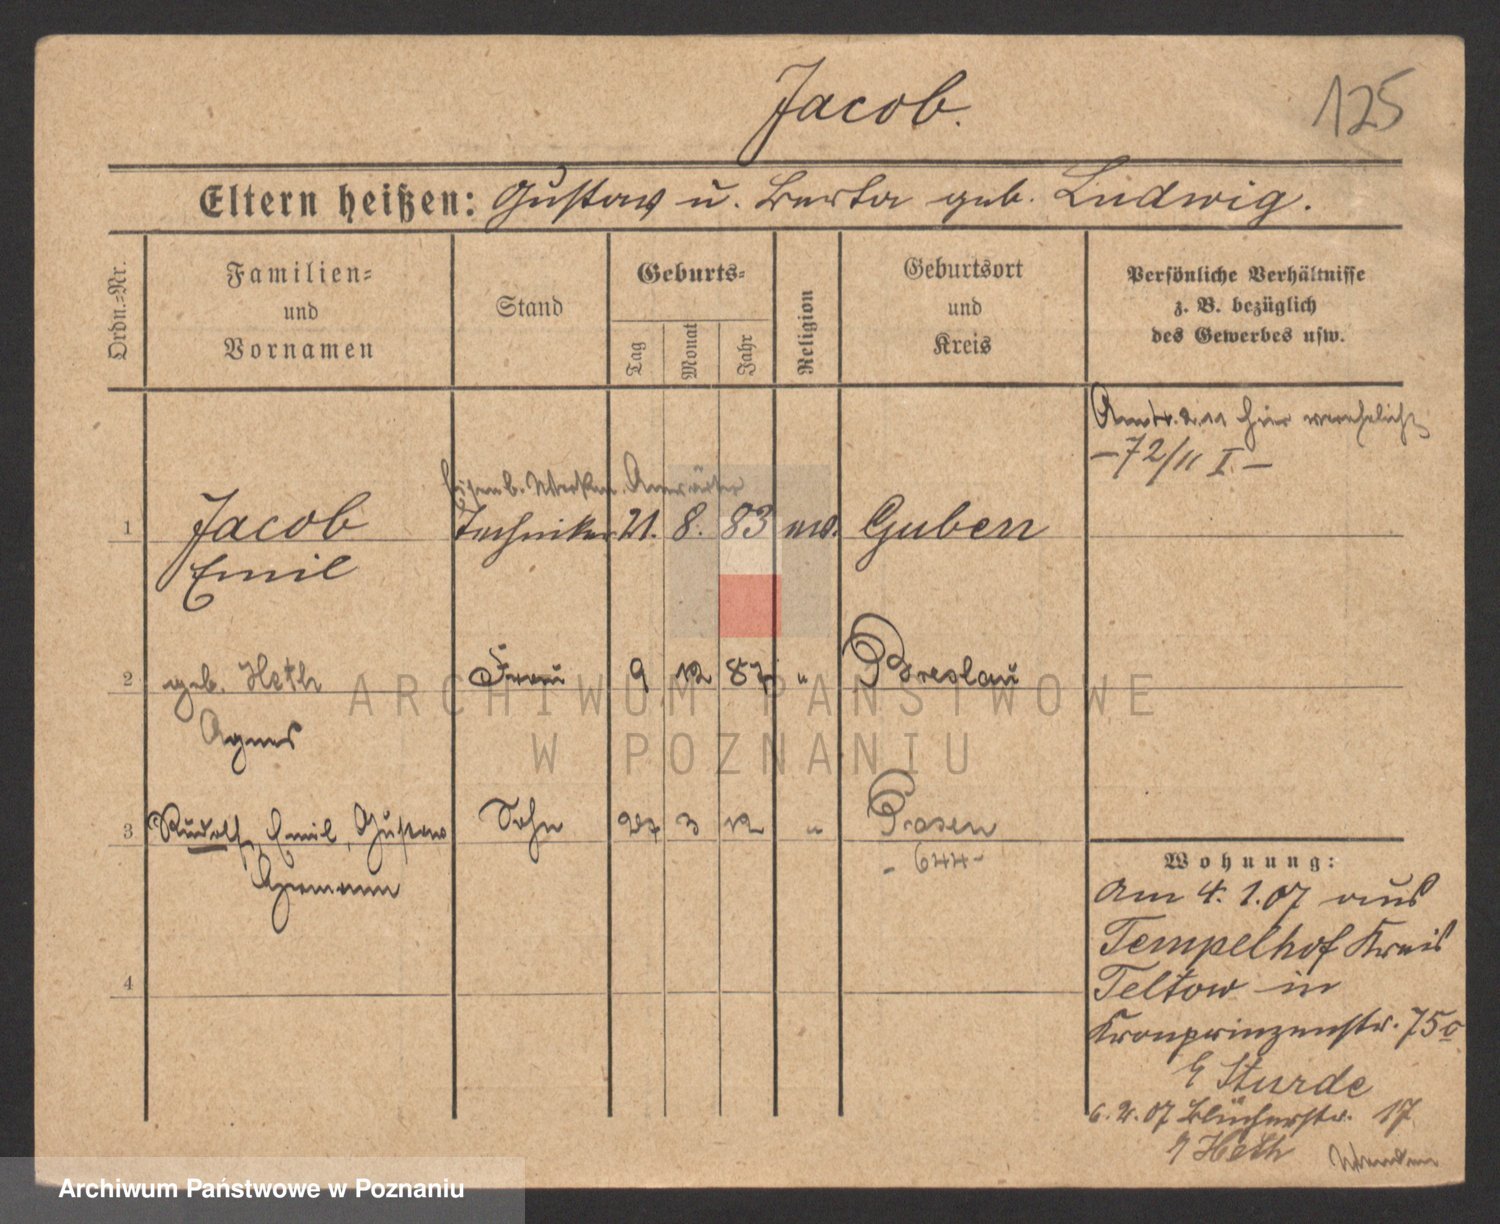 Jacob.
125
Eltern heißen: Gustav u. Berta geb. Ludwig.
Ordn.-Nr.
Familien-
und
Vornamen
Stand
Geburts-
Tag
Monat
Jahr
Religion
Geburtsort
und
Kreis
Persönliche Verhältnisse
z. B. bezüglich
des Gewerbes usw.
hier verehelicht
-72/11 I.-
Eisenb. Anwärter
1 Jacob Techniker 21. 8. 83 ev. Guben
Emil
2 geb. Heth Frau 9 12 87 " Breslau
Agnes
3 Rudolf, Emil, Gustav Sohn 27 3 12 " Posen
Hermann - 644 -
4
Wohnung:
Am 4. 1. 07 aus
Tempelhof Kreis
Teltow in
Kronprinzenstr. 75c
b/ Sturde
6. 2. 07 Blücherstr. 17
b/ Heth
ARCHIWUM PAŃSTWOWE
W POZNANIU
Archiwum Państwowe w Poznaniu